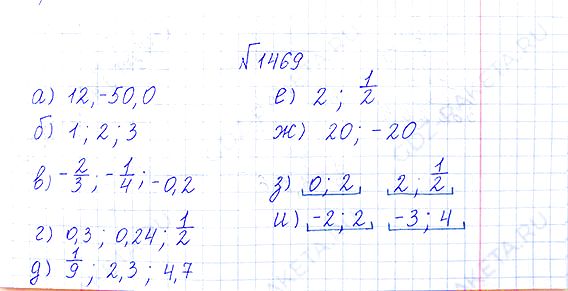 №1469
а) 12, -50, 0
б) 1; 2; 3
в) -2/3; -1/4; -0,2
г) 0,3; 0,24; 1/2
д) 1/9; 2,3; 4,7
е) 2; 1/2
ж) 20; -20
з) 0; 2 2; 1/2
и) -2; 2 -3; 4